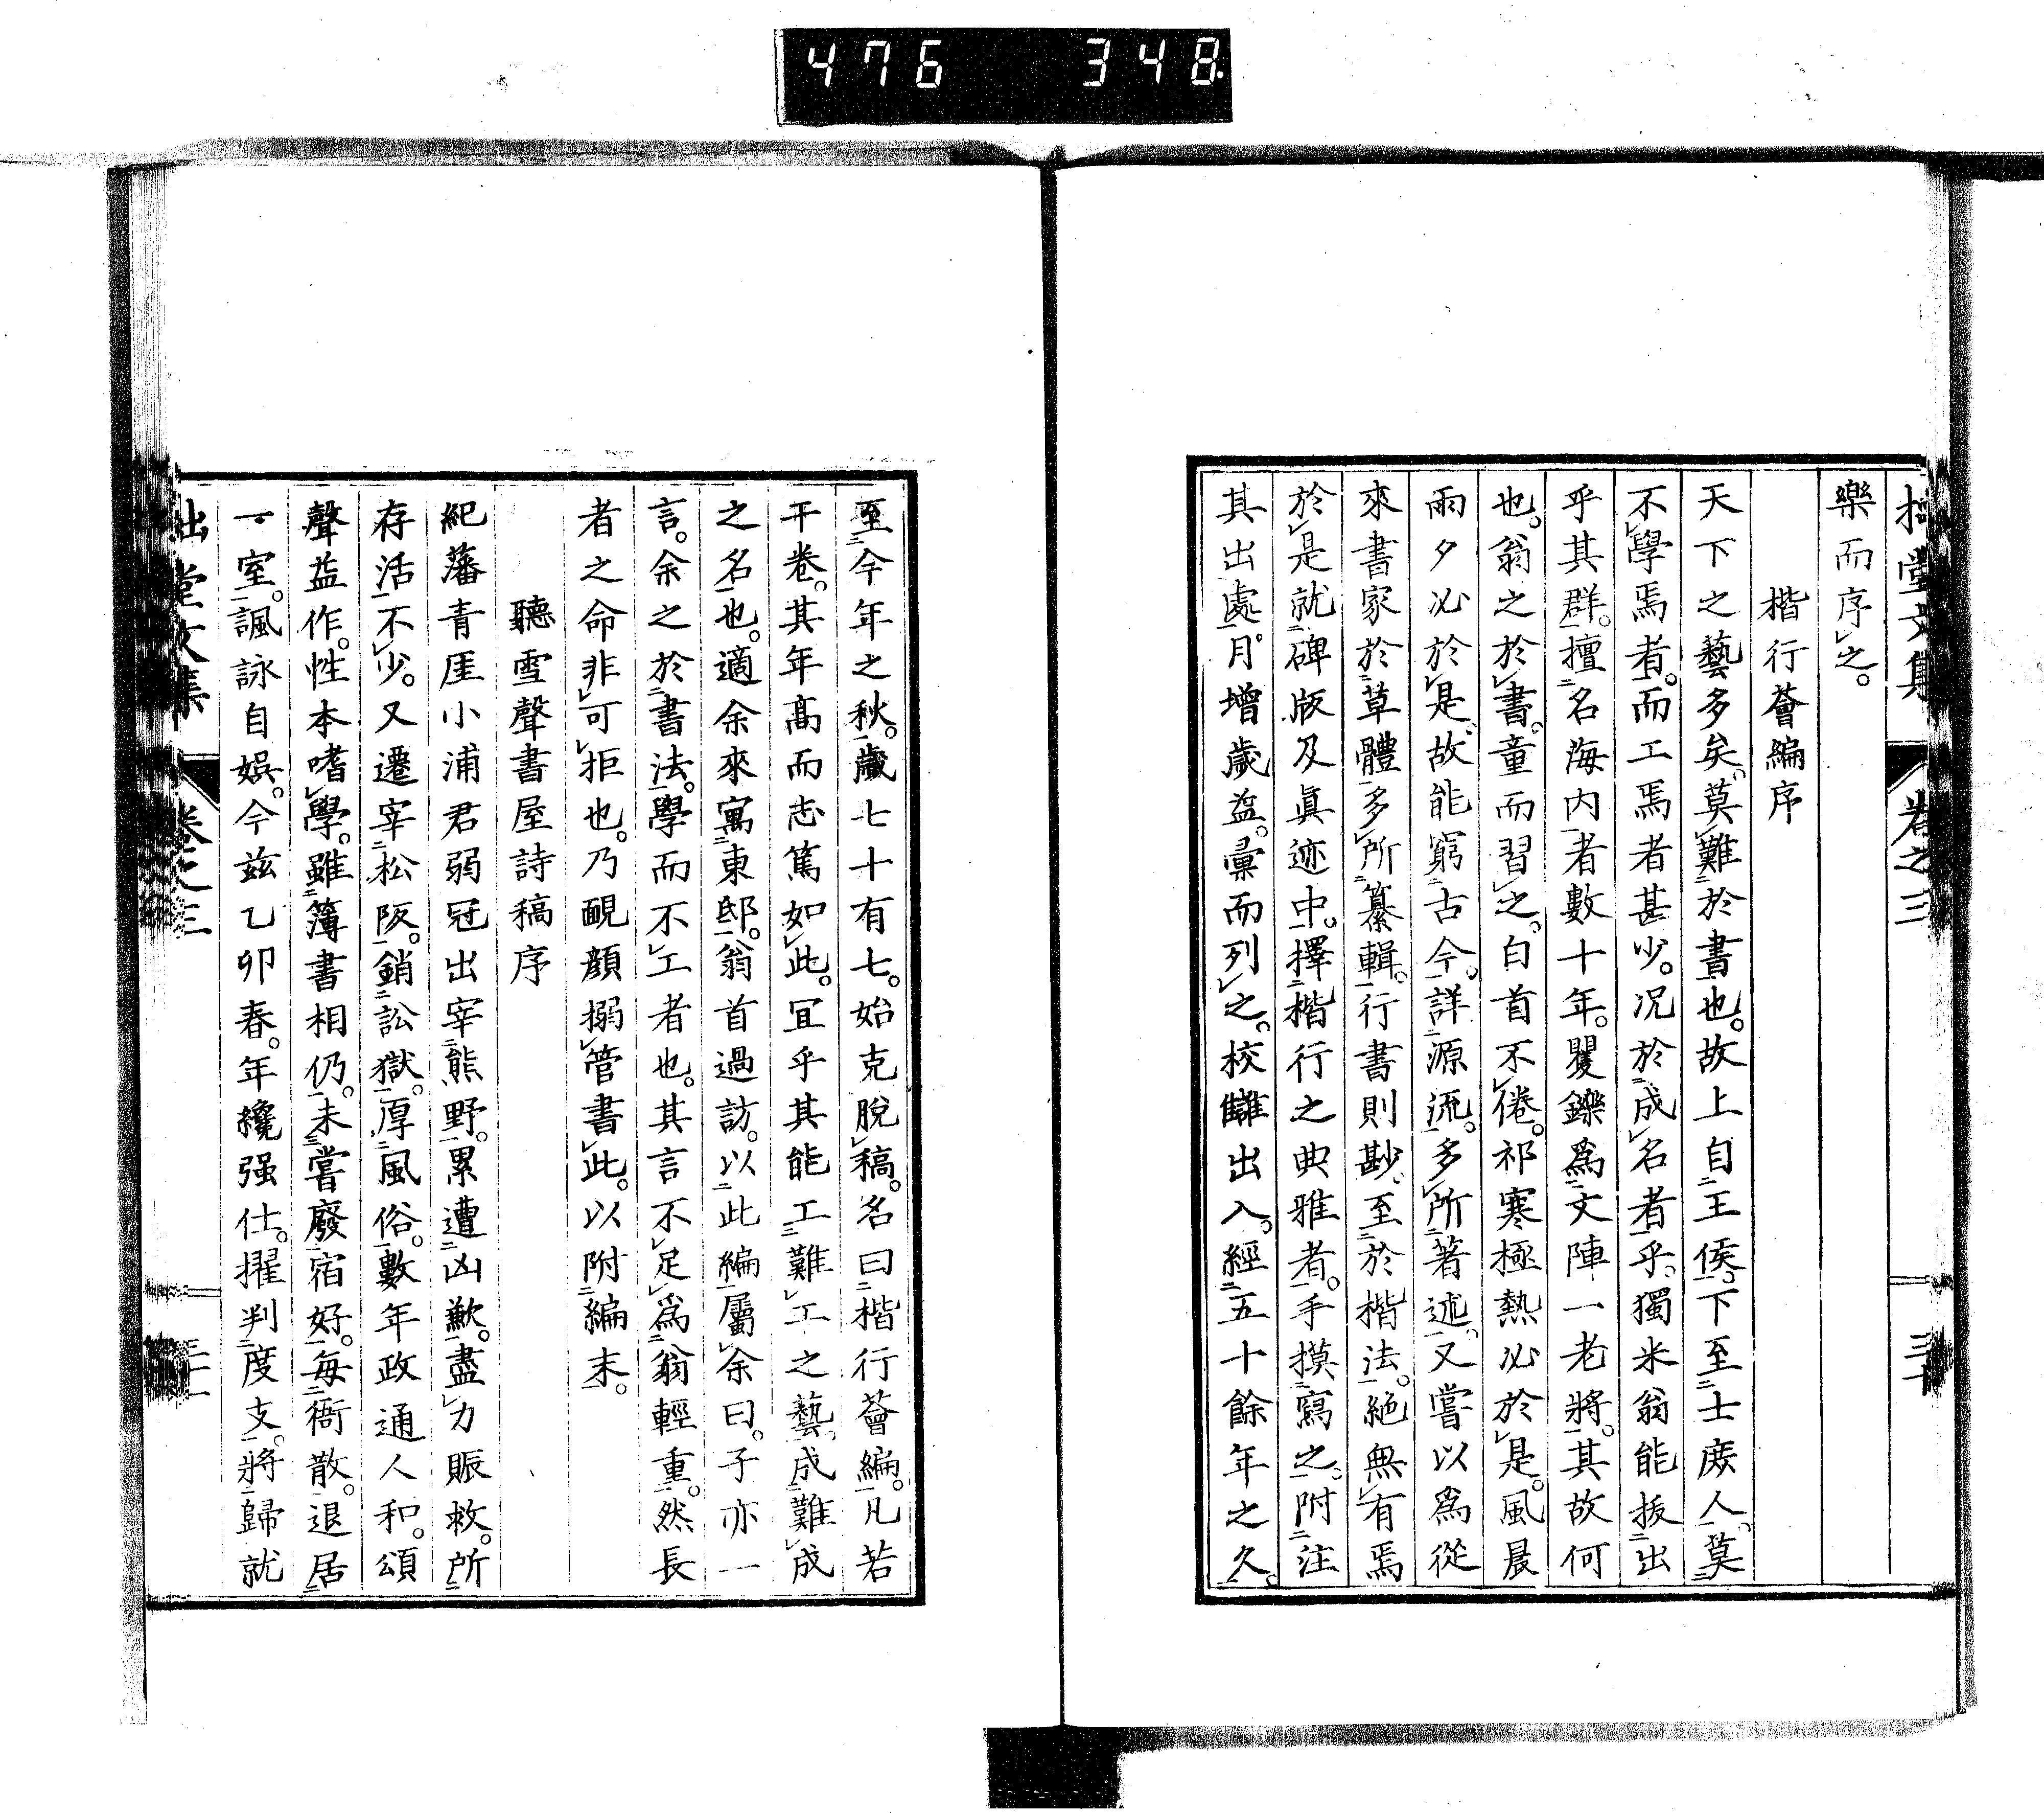 476 348
樂而序之。
楷行薈編序
天下之藝多矣。莫難於書也。故上自王侯。下至士庶人。莫
不學焉者。而工焉者甚少。况於成名者乎。獨米翁能拔出
乎其群。擅名海内者數十年。矍鑠爲文陣一老將。其故何
也。翁之於書。童而習之。白首不倦。祁寒極熱必於是。風晨
雨夕必於是。故能窮古今。詳源流。多所著述。又嘗以爲從
來書家於草體多所纂輯。行書則尠。至於楷法。絶無有焉
於是就碑版及眞迹中。擇楷行之典雅者。手摸寫之。附注
其出處。月增歲益。彙而列之。校讎出入。經五十餘年之久。
至今年之秋。歲七十有七。始克脱稿。名曰楷行薈編。凡若
干卷。其年高而志篤如此。宜乎其能工難工之藝。成難成
之名也。適余來寓東邸。翁首過訪。以此編屬余曰。子亦一
言。余之於書法。學而不工者也。其言不足爲翁輕重。然長
者之命非可拒也。乃靦顔搦管書此。以附編末。
聽雪聲書屋詩稿序
紀藩青厓小浦君弱冠出宰熊野。累遭凶歉。盡力賑救。所
存活不少。又遷宰松阪。銷訟獄。厚風俗。數年政通人和。頌
聲益作。性本嗜學。雖簿書相仍。未嘗廢宿好。每衙散。退居
一室。諷詠自娯。今兹乙卯春。年纔强仕。擢判度支。將歸就
堂文集 卷之三